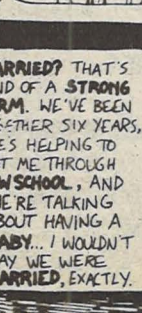 ARRIED? THAT'S
ND OF A STRONG
RM. WE'VE BEEN
GETHER SIX YEARS,
E'S HELPING TO
T ME THROUGH
W SCHOOL, AND
E'RE TALKING
BOUT HAVING A
ABY... I WOULDN'T
AY WE WERE
ARRIED, EXACTLY.